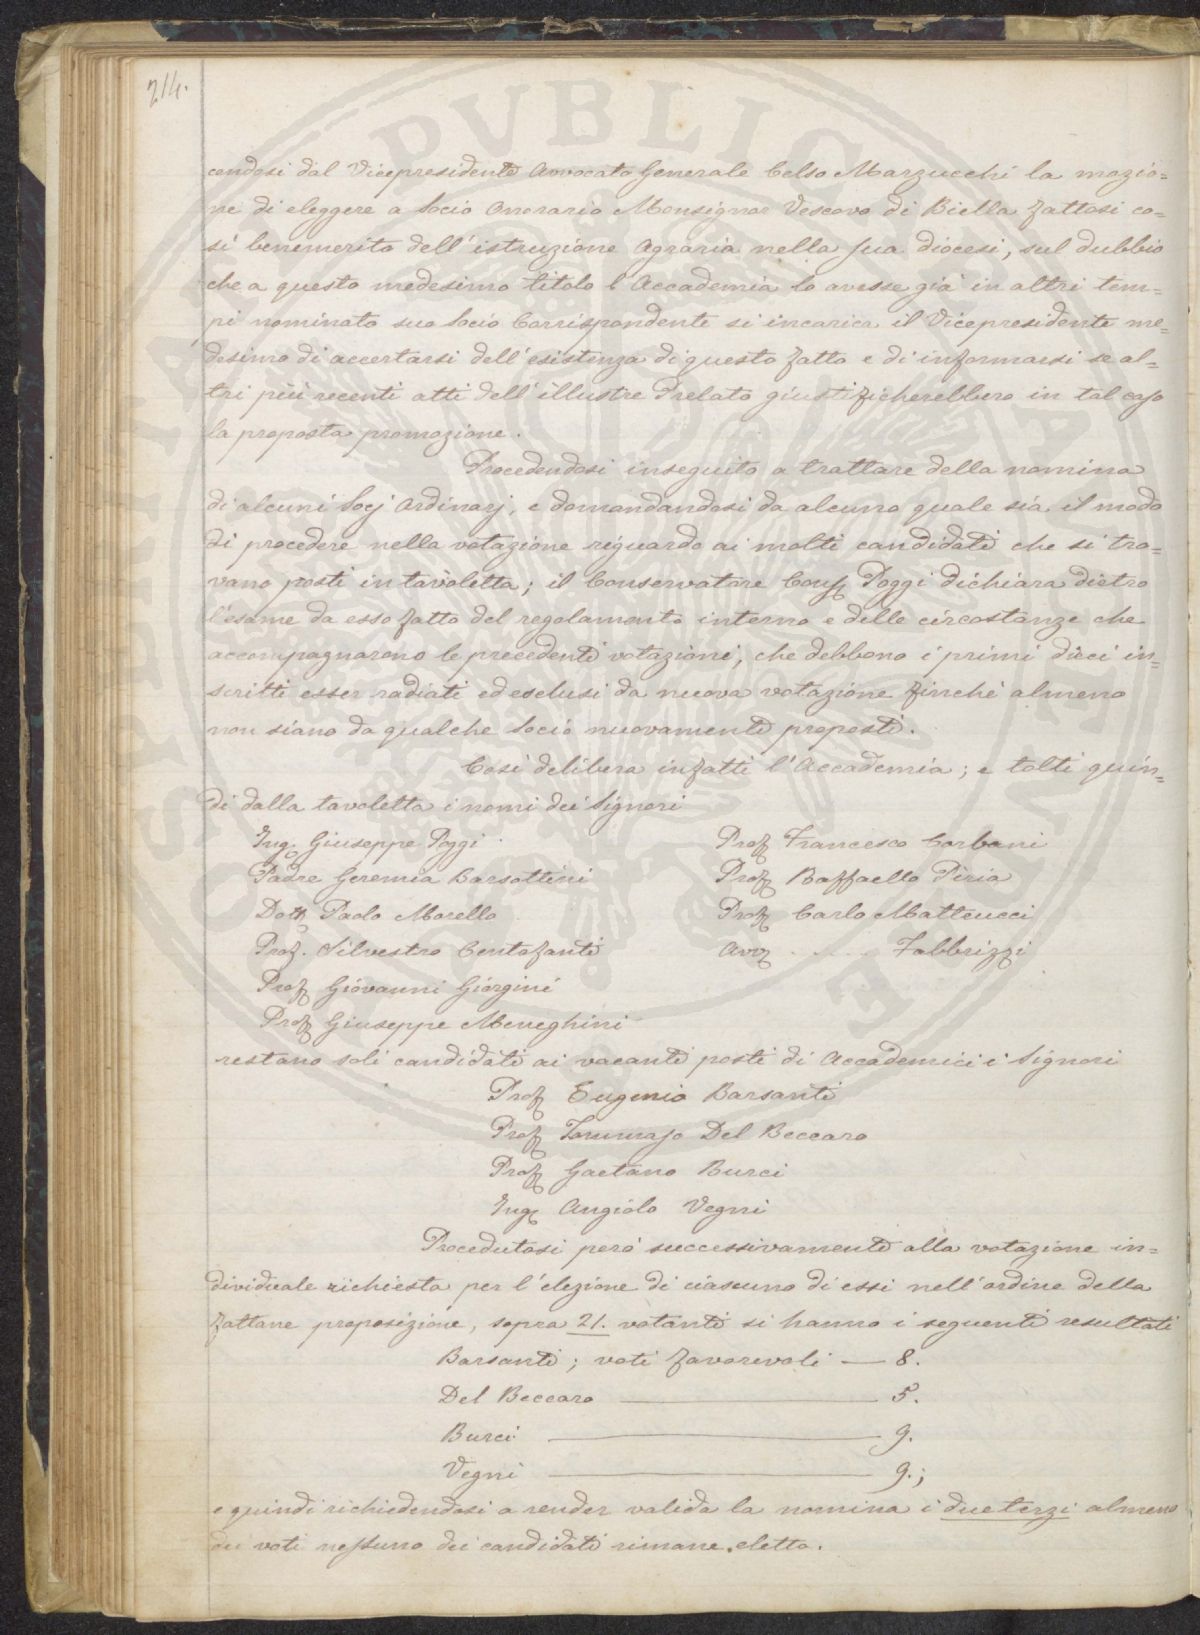 214.
candosi dal Vicepresidente Avvocato Generale Celso Marzucchi la mozio=
ne di eleggere a Socio Onorario Monsignor Vescovo di Biella fattosi co=
sì benemerito dell'istruzione Agraria nella sua diocesi, sul dubbio
che a questo medesimo titolo l'Accademia lo avesse già in altri tem=
pi nominato suo Socio Corrispondente si incarica il Vicepresidente me=
desimo di accertarsi dell'esistenza di questo fatto e di informarsi se al=
tri più recenti atti dell'illustre Prelato giustificherebbero in tal caso
la proposta promozione.
Procedendosi inseguito a trattare della nomina
di alcuni Socj Ordinarj, e domandandosi da alcuno quale sia il modo
di procedere nella votazione riguardo ai molti candidati che si tro=
vano posti in tavoletta; il Conservatore Cons. Poggi dichiara dietro
l'esame da esso fatto del regolamento interno e delle circostanze che
accompagnarono le precedenti votazioni, che debbono i primi dieci in=
scritti esser radiati ed esclusi da nuova votazione finchè almeno
non siano da qualche Socio nuovamente proposti.
Così delibera infatti l'Accademia; e tolti quin=
di dalla tavoletta i nomi dei Signori
Ing. Giuseppe Poggi Prof. Francesco Corbani
Padre Geremia Barsottini Prof. Raffaello Piria
Dott. Paolo Morello Prof. Carlo Matteucci
Prof. Silvestro Centofanti Avv. . . . . . Fabbrizzi
Prof. Giovanni Giorgini
Prof. Giuseppe Meneghini
restano soli candidati ai vacanti posti di Accademici i Signori
Prof. Eugenio Barsanti
Prof. Tommaso Del Beccaro
Prof. Gaetano Burci
Ing. Angiolo Vegni
Procedutosi però successivamente alla votazione in=
dividuale richiesta per l'elezione di ciascuno di essi nell'ordine della
fattane proposizione, sopra 21. votanti si hanno i seguenti resultati
Barsanti; voti favorevoli — 8.
Del Beccaro — 5.
Burci — 9.
Vegni — 9.;
e quindi richiedendosi a render valida la nomina i due terzi almeno
dei voti nessuno dei candidati rimane eletto.